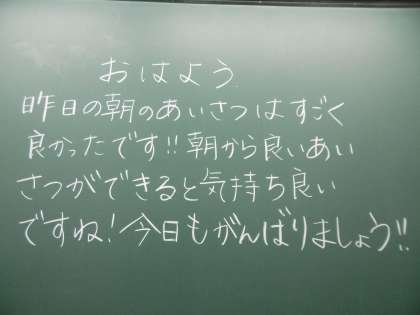 おはよう
昨日の朝のあいさつはすごく
良かったです!!朝から良いあい
さつができると気持ち良い
ですね!今日もがんばりましょう!!